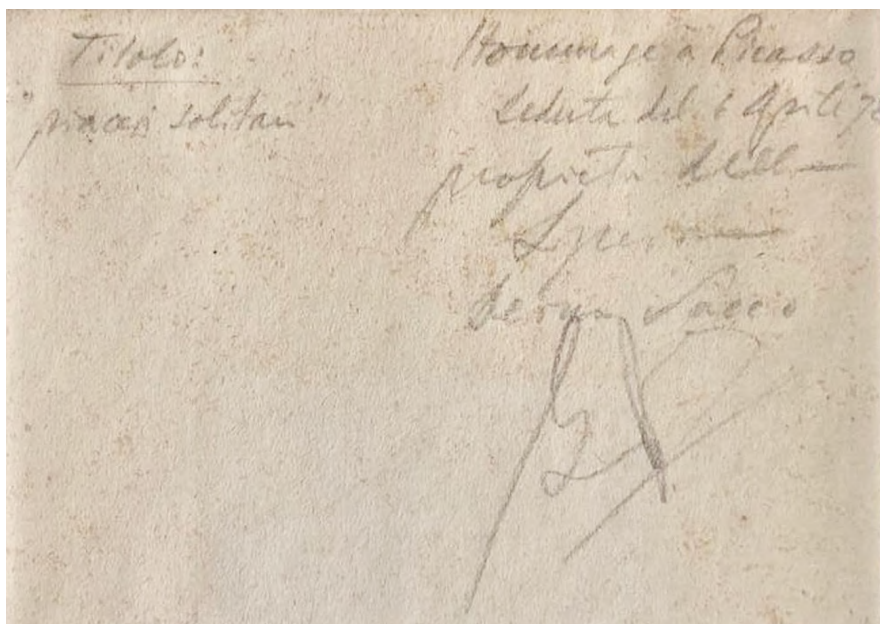 Titolo:
"piaceri solitari"
Hommage à Picasso
Seduta del 6 Aprile 78
proprietà della
Sacco